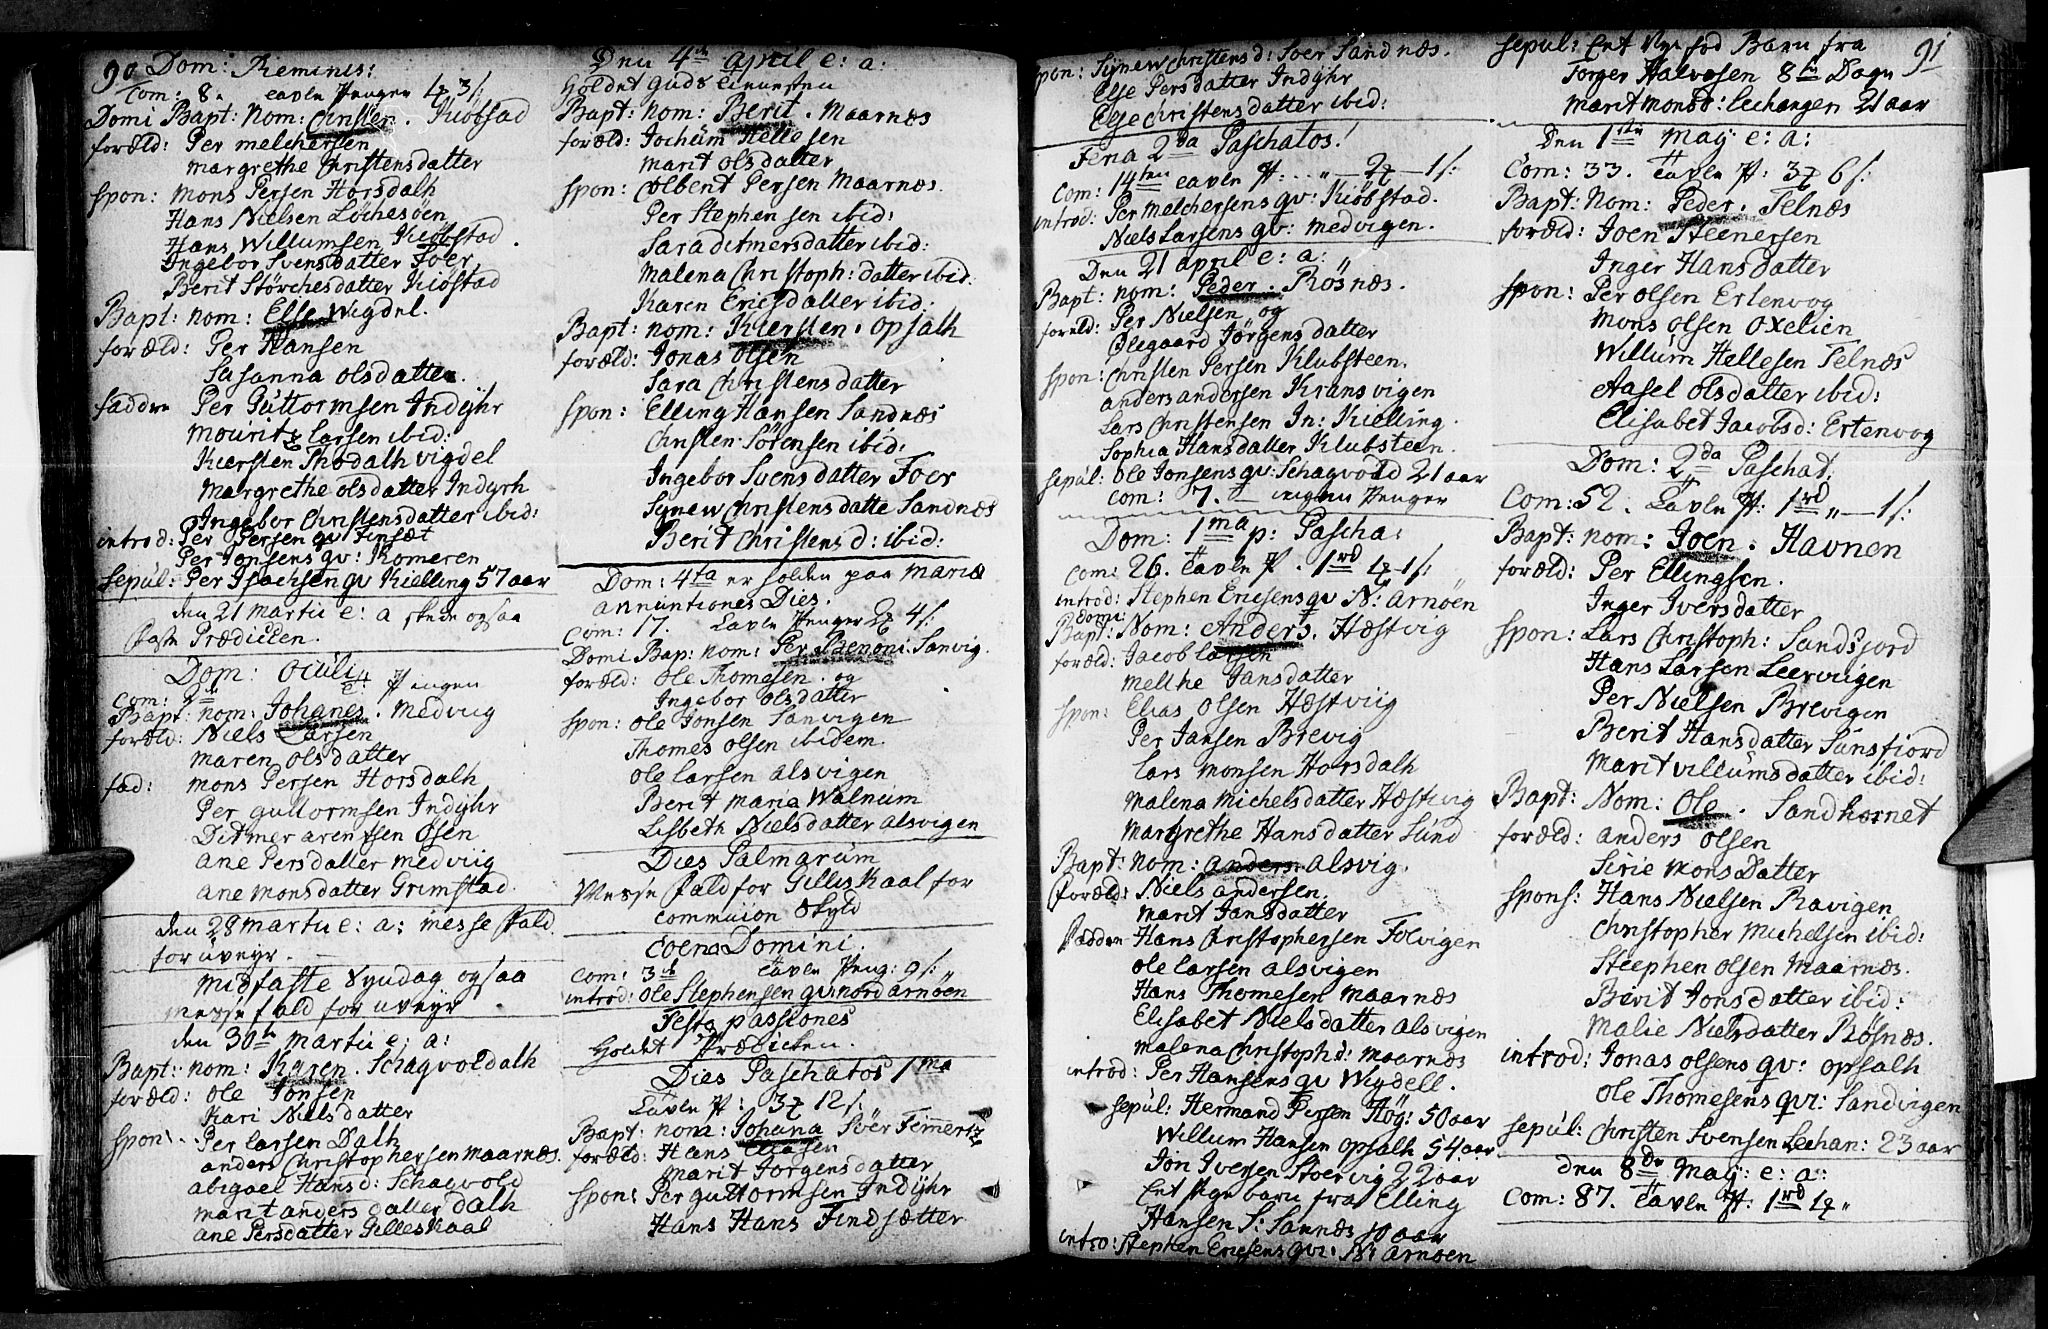 90 Dom: Reminis:
Com: 8. tavle Penger 1 3 s:
Domi Bapt: Nom: Christen. Kiobstad
foræld: Per melchersen
margrethe Christensdatter
spon: mons Persen Horsdalh
Hans Nielsen Löchesöen
Hans Willumsen Kiöbstad.
Ingebor Svensdatter Foer
Berit Störchesdatter Kiöstad
Bapt: nom: Else Wigdel.
foræld: Per Hansen
Susanna olsdatter.
faddre Per Guttormsen Indÿhr
mouritz larsen ibid:
Kiersten Thodalh vigdel
Margrethe olsdatter Indyrh
Ingebor Christensdatter ibid:
introd: Per Persen qv Finsæt
Per Jonsens qv: Komeren
sepul: Per Isachsen qv Kielling 57 aar
den 21 martii e: a skede ogsaa
faste Prædicken.
Dom: Oculi
Com: 9 Pingen
Bapt: nom: Johanes. medviig
foræld: Niels Larsen
maren olsdatter
fad: mons Persen Horsdalh
Per guttormsen Indÿhr
Ditmer arentsen Osen
ane Persdatter medviig
ane monsdatter Grimstad.
den 28 martii e: a: messe fald
for uveyr.
midfaste Syndag ogsaa
messe fald for uveyr
den 30te martii e: a:
Bapt: nom: Karen. Schagvoldalh
foræld: Ole Jonsen
Kari Nielsdatter
spon: Per larsen Dalh
anders Christophersen maarnæs.
abigael Hansd: Schagvold
marit anders datter dalh
ane Persdatter Gilleskaal
Den 4de april e: a:
Holdet Guds tienesten
Bapt: nom: Berit. Maarnæs
foræld: Jochum Hellesen
marit olsdatter
spon: Colbent Persen Maarnæs.
Per Stephensen ibid:
Sara ditmersdatter ibid:
Malena Christoph: datter ibid:
Karen Ericsdatter ibid:
Bapt: nom: Kiersten. opsalh
foræld: Jonas Olsen
Sara Christensdatter
spon: Elling Hansen Sandnæs
Christen Sörensen ibid:
Ingebor Svensdatter Foer
Synew Christensdatte Sandnæs
Berit Christensd: ibid:
Dom: 4ta er holden paa Mariæ
annuntiones Dies.
Com: 17. Tavle Penger 2 4 s:
Domi Bap: nom: Per Sanvig.
foræld: Ole Thomesen. og
Ingebor olsdatter
spon: Ole Jonsen Sanvigen
Thomes olsen ibidem.
Ole larsen alsvigen
Berit Maria Walnum
Lisbeth Nielsdatter alsvigen
Dies Palmarum
Messe fald for Gilleskaal for
communion Skyld
Coena Domini.
Com: 3 Tavle Peng: 9 s:
introd: Ole Stephensen qv: nord arnöen
Festo passiones
Holdet Prædicken.
Dies Paschatos 1ma
Tavle P: 3 12 s:
Bapt: nom: Johana Söer
foræld: Hans Eliasen
Marit Jorgensdatter
spon: Per guttormsen Indÿhr
Hans Hans Findsætter
spon: Synew Christensd: Soer Sandnæs.
Else Persdatter Indyhr
Else Christensdatter ibid:
Feria 2da Paschatos!
Com: 14ten tavle P: 2 1 s:
introd: Per melchersens qv: Kiöbstad.
Niels Larsens qv: medvigen.
Den 21 april e: a:
Bapt: nom: Peder. Rösnæs.
foræld: Per Nielsen og
Olegaard Jörgensdatter
spon: Christen Persen Klubsteen.
anders andersen Kransvigen
Lars Christensen In: Kielling.
Sophia Hansdatter Klubsteen
sepul: Ole Jonsens qv: Schagvold 21 aar
Com: 7. ingen Penger
Dom: 1ma p: Pascha:
Com: 26. Tavle P. 1rd 1 1 s:
introd: Stephen Ericsens qv N: arnöen
domi
Bapt: Nom: Anders. Hæstvig
foræld: Jacob larsen
melthe Jansdatter
spon: Elias Olsen Hæstviig
Per Jansen Brevig
lars monsen Horsdalh
Malena Michelsdatter Hæstvig
Margrethe Hansdatter Sund
Bapt: nom: anders. alsvig.
foræld: Niels andersen
Marit Jansdatter
faddre Hans Christophersen Folvigen
Ole larsen alsvigen
Hans Thomesen maarnæs
Elisabet Nielsdatter alsvigen
Malena Christophd: maarnæs
introd: Per Hansens qv Wigdell.
sepul: Hermand Persen Hög: 50 aar
Willum Hansen opsalh 54 aar
Jon Iversen Stoervig 22 aar
Ent Pige barn fra Elling
Hansen S: Sannæs 10 aar
intro: Stephen Ericsens qvi: N: arnöen
sepul: Ent Nye föd Barn fra 91
Torger Halvorsen 8te Dage
marit monsd: Lechangen 21 aar
Den 1ste may e: a:
Com: 33. Tavle P: 3 6 s:
Bapt: Nom: Peder. Felnæs
foræld: Joen Steenersen
Inger Hansdatter
spon: Per olsen Ertenvog
Mons olsen oxelien
Willum Hellesen Felnæs
Aasel olsdatter ibid:
Elisabet Jacobsd: Ertenvog
Dom: 2da Paschat:
Com: 52. Tavle P: 1rd „ 1 s:
Bapt: nom: Joen. Havnen
foræld: Per Ellingsen.
Inger Iversdatter
spon: Lars Christoph: Sandsjord
Hans Larsen Leerviigen
Per Nielsen Brevigen
Berit Hansdatter Sunsfiord
Marit villumsdatter ibid:
Bapt: Nom: Ole. Sandhornet
foræld: anders Olsen
Sirie Mons Datter
Spons: Hans Nielsen Ravigen
Christopher Michelsen ibid:
Steephen Olsen Maarnæs.
Berit Jonsdatter ibid:
Malie Nielsdatter Bösnæs.
introd: Jonas olsens qv: opsalh
Ole Thomesens qvi: Sandvigen
sepul: Christen Svensen Lechan: 23 aar
Den 8de may: e: a:
Com: 87. Tavle P: 1rd 1 „